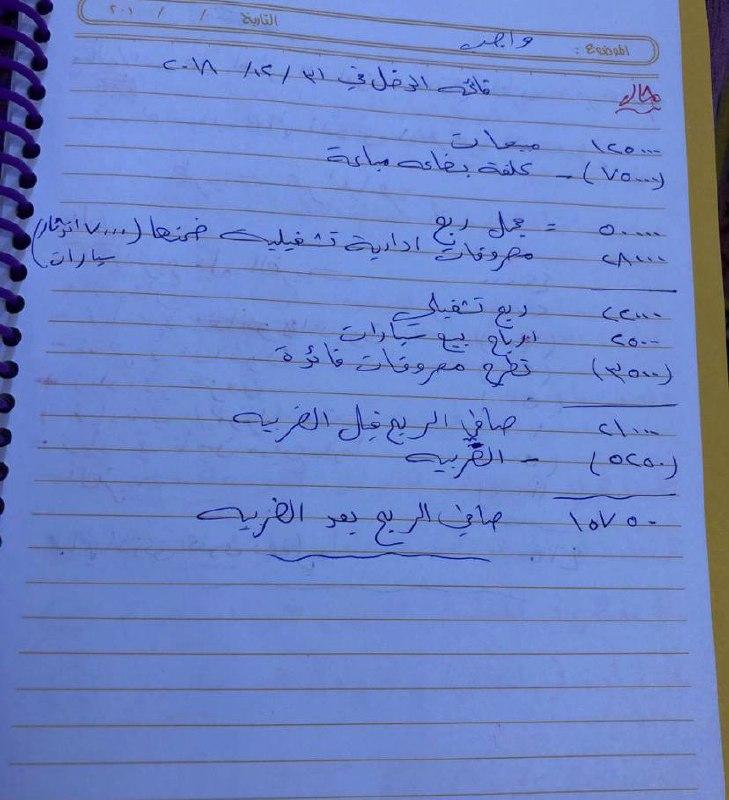 التاريخ / / ٢٠١
الموضوع: واجب
مثال
قائمه الدخل في ٣١ /١٢/ ٢٠١٨
١٢٥٠٠٠ مبيعات
(٧٥٠٠٠) - تكلفة بضاعه مباعة
٥٠٠٠٠ = مجمل ربح
٢٨٠٠٠ مصروفات ادارية تشغيليه ضمنها (٧٠٠٠ اهلاك سيارات)
٢٢٠٠٠ ربح تشغيلي
٢٥٠٠ ارباح بيع سيارات
(٣٥٠٠) تطرح مصروفات فائدة
٢١٠٠٠ صافي الربح قبل الضريبه
(٥٢٥٠) - الضريبه
١٥٧٥٠ صافي الربح بعد الضريبه